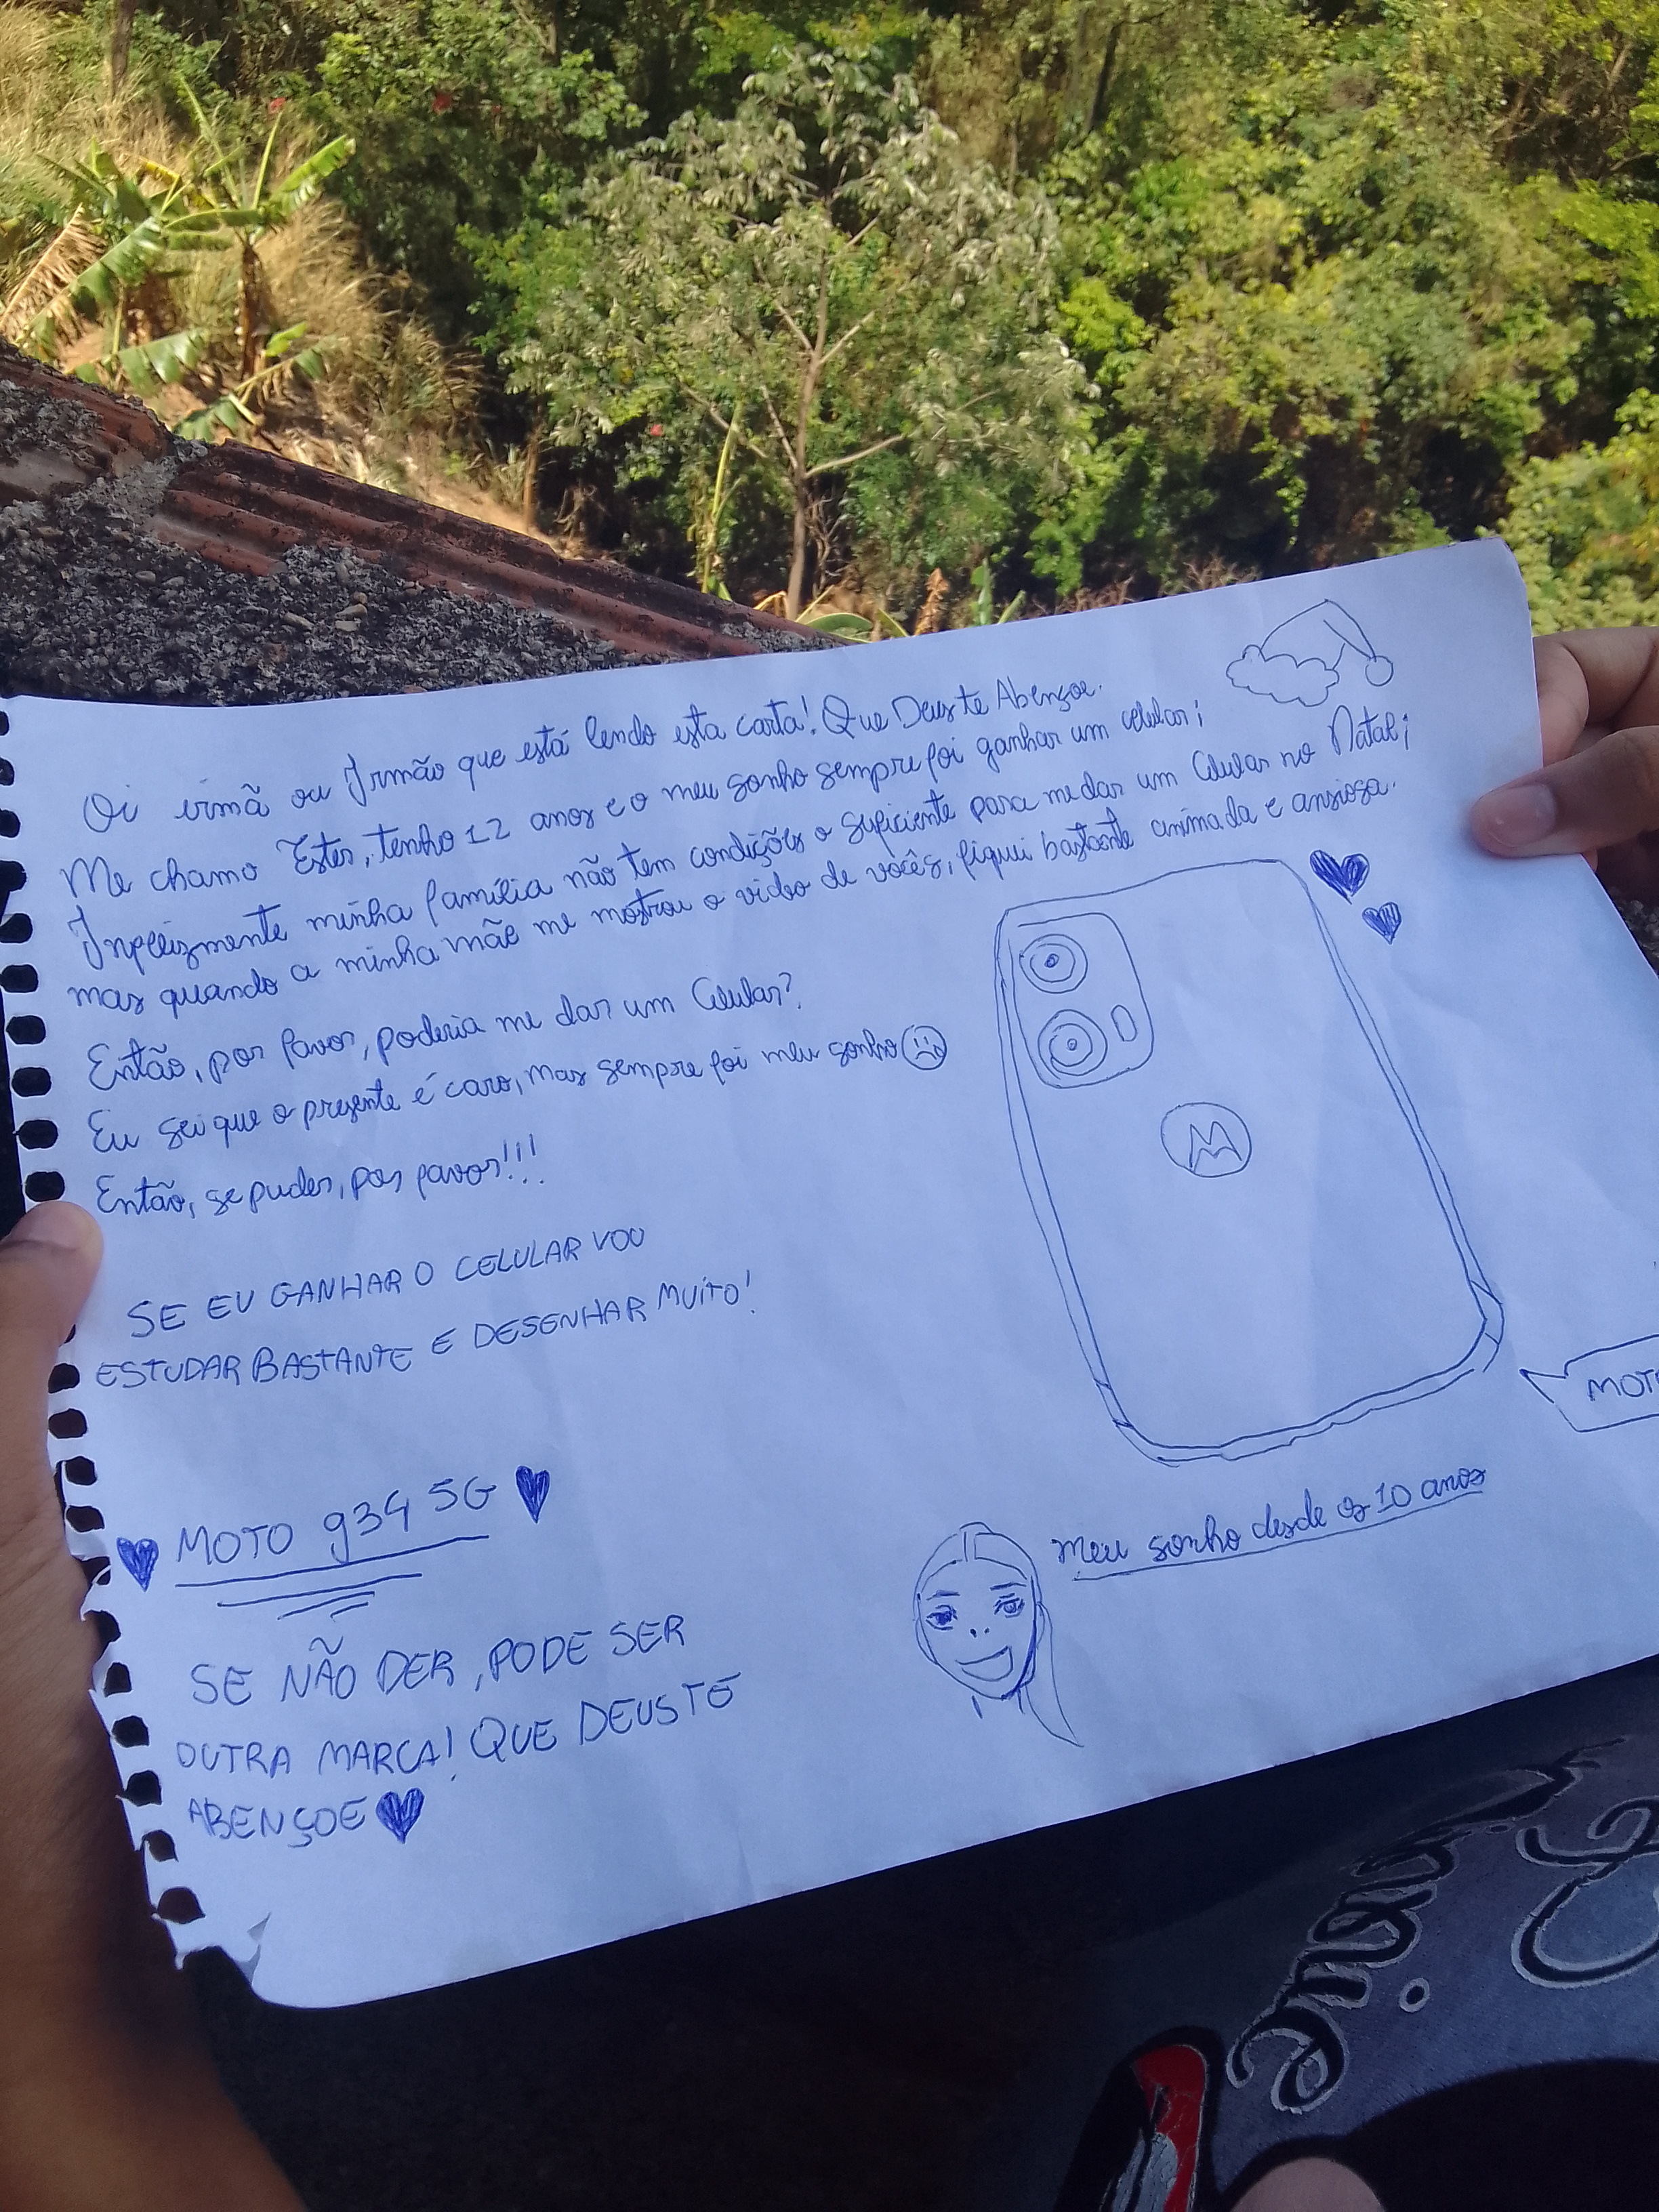 Oi irmã ou Irmão que está lendo esta carta! Que Deus te Abençoe.
Me chamo Ester, tenho 12 anos e o meu sonho sempre foi ganhar um celular;
Infelizmente minha família não tem condições o suficiente para me dar um Celular no Natal;
mas quando a minha mãe me mostrou o video de vocês, fiquei bastante animada e ansiosa.
Então, por favor, poderia me dar um Celular?
Eu sei que o presente é caro, mas sempre foi meu sonho
Então, se puder, por favor!!!
SE EU GANHAR O CELULAR VOU
ESTUDAR BASTANTE E DESENHAR MUITO!
MOTO g34 5G
SE NÃO DER, PODE SER
OUTRA MARCA! QUE DEUS TE
ABENÇOE
M
MOT
Meu sonho desde os 10 anos